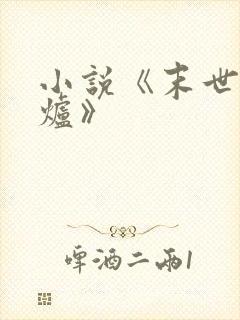 小說《末世
爐》
啤酒二兩1